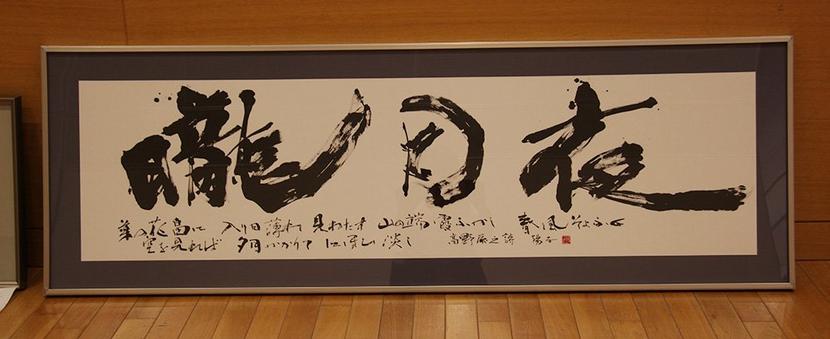 朧月夜
菜の花畠に 入り日薄れ 見わたす 山の端 霞ふかし 春風そよふく
空を見れば 夕月かかりて にほひ 淡し 高野辰之詩